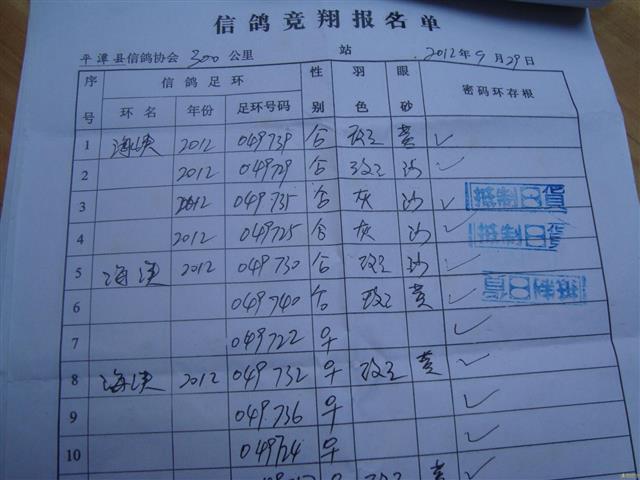 信鸽竞翔报名单
平潭县信鸽协会 300 公里 站 2012年9月29日
序号 信鸽足环 性别 羽色 眼砂 密码环存根
环名 年份 足环号码
1 海峡 2012 049739 合 玫 黄 ✓
2 2012 049729 合 玫 沙 ✓
3 2012 049735 合 灰 沙 ✓ 抵制日貨
4 2012 049725 合 灰 沙 ✓ 抵制日貨
5 海峡 2012 049730 合 沙 ✓ 抵制日貨
6 049740 合 黄 ✓
7 049722 ✓
8 海峡 2012 049732 黄 ✓
9 049736 ✓
10 049724 ✓